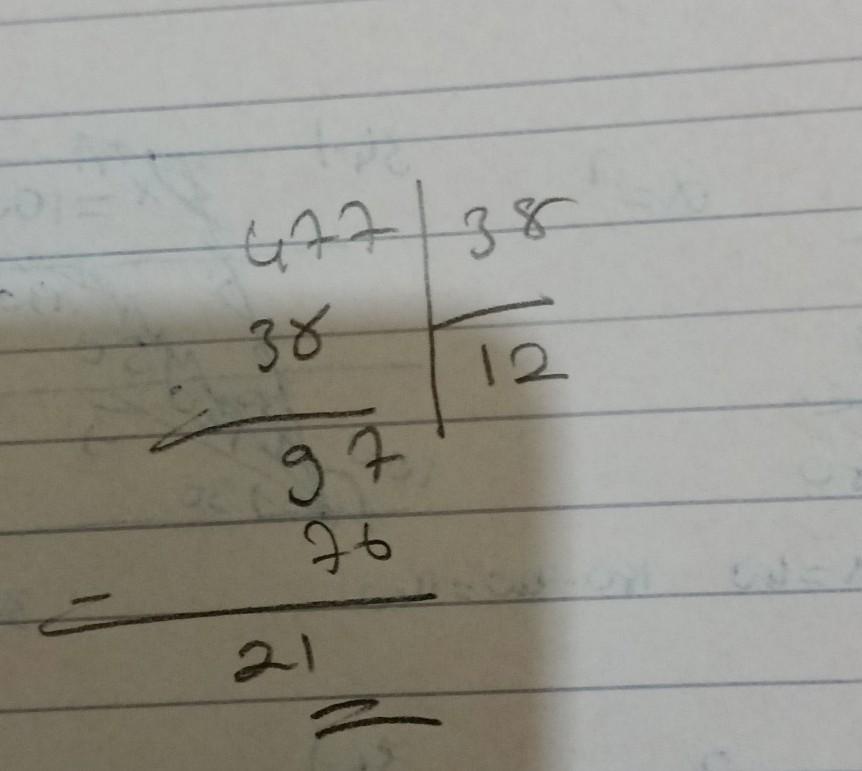 477 | 38
38
12
97
76
-
21
=